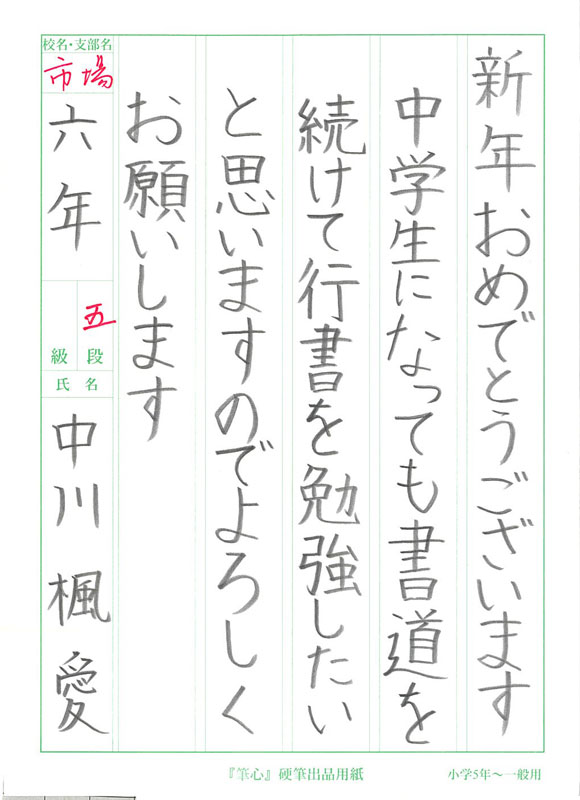 新年おめでとうございます
中学生になっても書道を
続けて行書を勉強したい
と思いますのでよろしく
お願いします
校名・支部名
市場
六年
五
級 段
氏名
中川楓愛
『筆心』硬筆出品用紙
小学5年〜一般用